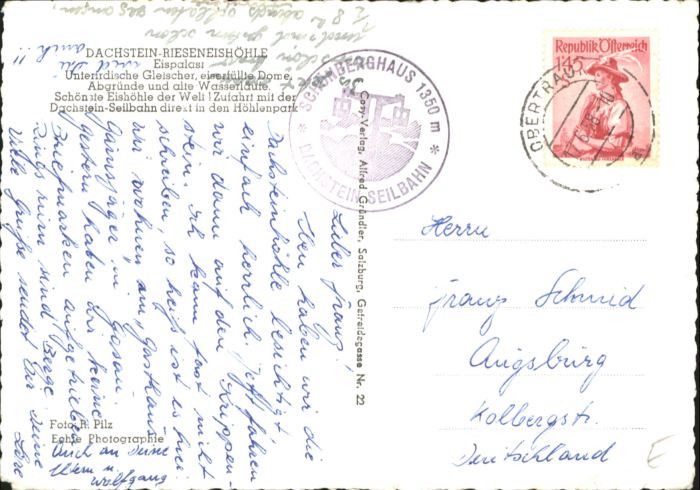 DACHSTEIN-RIESENEISHÖHLE
Eispalast
Unterirdische Gletscher, eiserfüllte Dome,
Abgründe und alte Wasserläufe.
Schönste Eishöhle der Welt! Zufahrt mit der
Dachstein-Seilbahn direkt in den Höhlenpark
SCHÖNBERGHAUS 1350 m
* DACHSTEIN-SEILBAHN *
Republik Österreich
1.45
OBERTRAUN
Cosy-Verlag, Alfred Gründler, Salzburg, Getreidegasse Nr. 22
Lieber Franz!
Eben haben wir die
Dachsteinhöhle besichtigt
einfach herrlich. Jetzt fahren
wir dann auf den Krippen-
stein. Ich kann fast nicht
schreiben, so heiß ist es hier
Wir wohnen am "Gasthaus
Gamsjäger" in Gosau.
Gestern haben wir keine
Briefmarken aufgetrieben
Rings rum sind Berge
Viele Grüße sendet Dir Deine
Auch an Deine
Eltern u.
Wolfgang
Herrn
Franz Schmid
Augsburg
Kolbergstr.
Deutschland
Foto R. Pilz
Echte Photographie
E